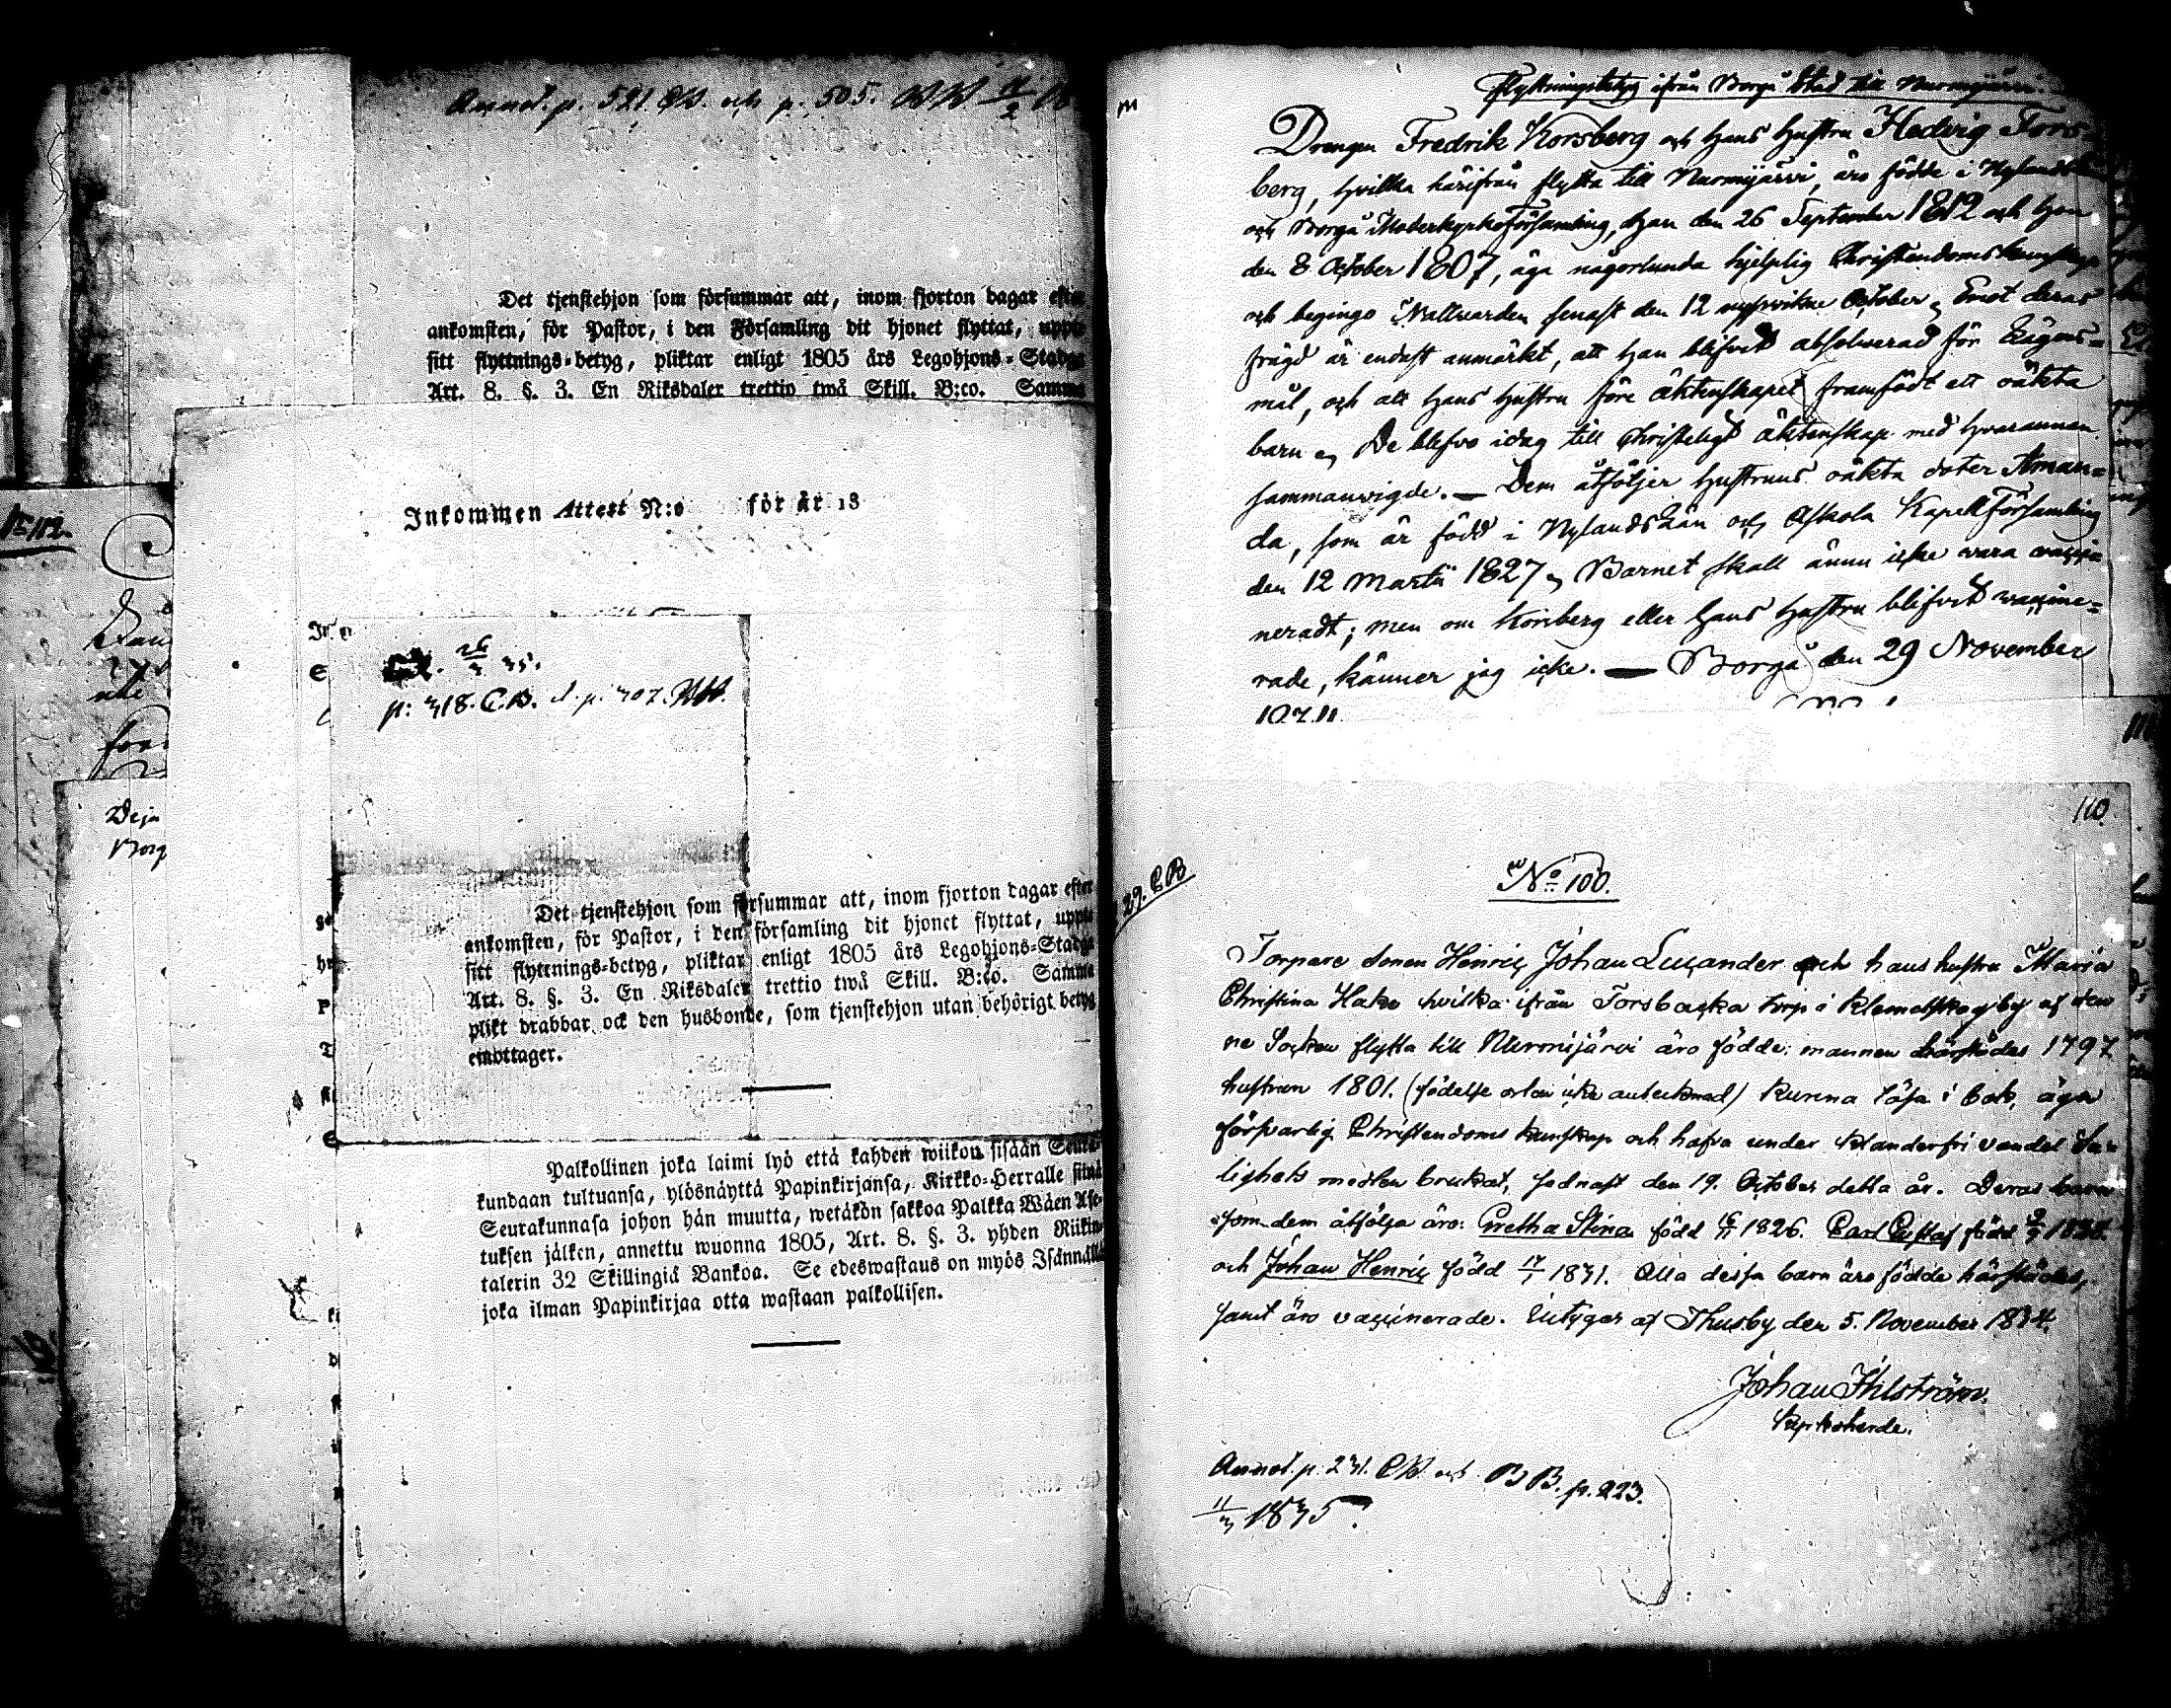 Annot. p. 521. CB. och p. 505.
Det tjenstehjon som försummar att, inom fjorton dagar efter
ankomsten, för Pastor, i den Församling dit hjonet flyttat,
sitt flyttnings-betyg, pliktar enligt 1805 års Legohjons-Stadga
Art. 8. §. 3. En Riksdaler trettio twå Skill. B:co. Samma
Inkommen Attest N:o för år 18
p: 318. C.B.
Det tjenstehjon som försummar att, inom fjorton dagar efter
ankomsten, för Pastor, i den församling dit hjonet flyttat,
sitt flyttnings-betyg, pliktar enligt 1805 års Legohjons-Stadga
Art. 8. §. 3. En Riksdaler trettio twå Skill. B:co. Samma
plikt drabbar ock den husbonde, som tjenstehjon utan behörigt betyg
emottager.
Palkollinen joka laimi lyö että kahden wiikon sisään Seura-
kundaan tultuansa, ylösnäyttä Papinkirjansa, Kirkko-Herralle siinä
Seurakunnasa johon hän muutta, wetäkön sakkoa Palkka Wäen Ase-
tuksen jälken, annettu wuonna 1805, Art. 8. §. 3. yhden Riikin-
talerin 32 Skillingiä Bankoa. Se edeswastaus on myös Isännällä
joka ilman Papinkirjaa otta wastaan palkollisen.
Deja
Borg
Flyttningsbetyg ifrån Borgå Stad till Nurmijärvi.
Drengen Fredrik Korsberg och hans hustru Hedvig Fors-
berg, hvilka härifrån flytta till Nurmijärvi, äro födde i Nylands
och Borgå Moderkyrko Församling, han den 26 September 1812 och hon
den 8 October 1807, äga någorlunda hjelplig Christendoms kunskap
och begingo Nattvarden senast den 12 October. Emot deras
frägd är endast anmärkt, att han blifvit absolverad för Lägers-
mål, och att hans hustru före äktenskapet framfödt ett oäkta
barn. De blefvo idag till Christeligt äktenskap med hvarannan
sammanvigde. — Dem åtföljer hustruns oäkta doter Aman-
da, som är född i Nylands Län och Askola Kapell Församling
den 12 Martii 1827. Barnet skall ännu icke vara
neradt; men om Korsberg eller hans hustru blifvit vaccine-
rade, känner jag icke. — Borgå den 29 November
110.
29. CB
No 100.
Torpare sonen Henric Johan Lucander och hans hustru Maria
Christina Hake hvilka ifrån Forsbacka torp i Klemetskog by af den
ne Socken flytta till Nurmijärvi äro födde: mannen härstädes 1797
hustrun 1801. (födelse orten icke antecknad) kunna läsa i bok, äga
försvarlig Christendoms kunskap och hafva under klanderfri vandel Sa-
lighets medlen brukat, sednast den 19. October detta år. Deras barn
som dem åtfölja äro: Gretha Stina född 1826. Carl Gustaf född
och Johan Henric född 17/1 1831. Alla dessa barn äro födde härstädes,
samt äro vaccinerade. Intygar af Thusby den 5. November 1834.
Johan Ahlström.
Kyrkoherde.
Annot. p. 231. CB. och BB. p. 223.
11/3 1835.